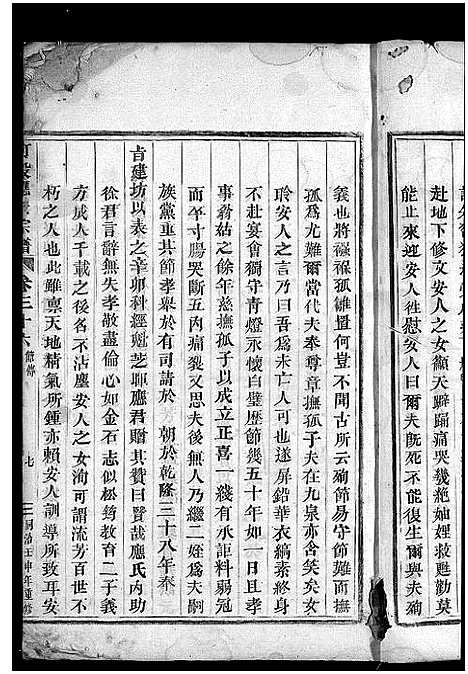 赴地下修文安人女顱天躃踊痛哭幾絶妯娌救甦勸莫
能止來迎安人徃慰安人曰爾夫旣死不能復生爾與夫殉
義也將襁褓孤雛置何豈不聞古所云殉節易守節難而撫
孤爲尤難爾當代夫奉尊章撫孤子夫在九泉亦含笑矣女
聆安人之言乃曰吾爲其難可也遂屏鉛華衣縞素終身
不赴宴會獨守青燈永懷白璧歷節幾五十年如一日且孝
事翁姑之餘年慈撫孤子以成立正喜一綫有承詎料弱冠
而卒寸腸哭斷五内痛裂又思夫後無人乃繼二姪爲夫嗣
族黨重其節孝舉於有司請於 朝於乾隆三十八年奉
旨建坊以表之辛卯科經魁芝暉應君贈其贊曰賢哉應氏内助
徐君言辭無失孝敬盡倫心如金石志似松筠教育二子義
方成人千載之後名不沾塵安人之女洵可謂流芳百世不
朽之人也此雖禀天地精氣所鍾亦賴安人訓導所致耳安
宗譜 卷三十六 傳 七 同治壬申年重修